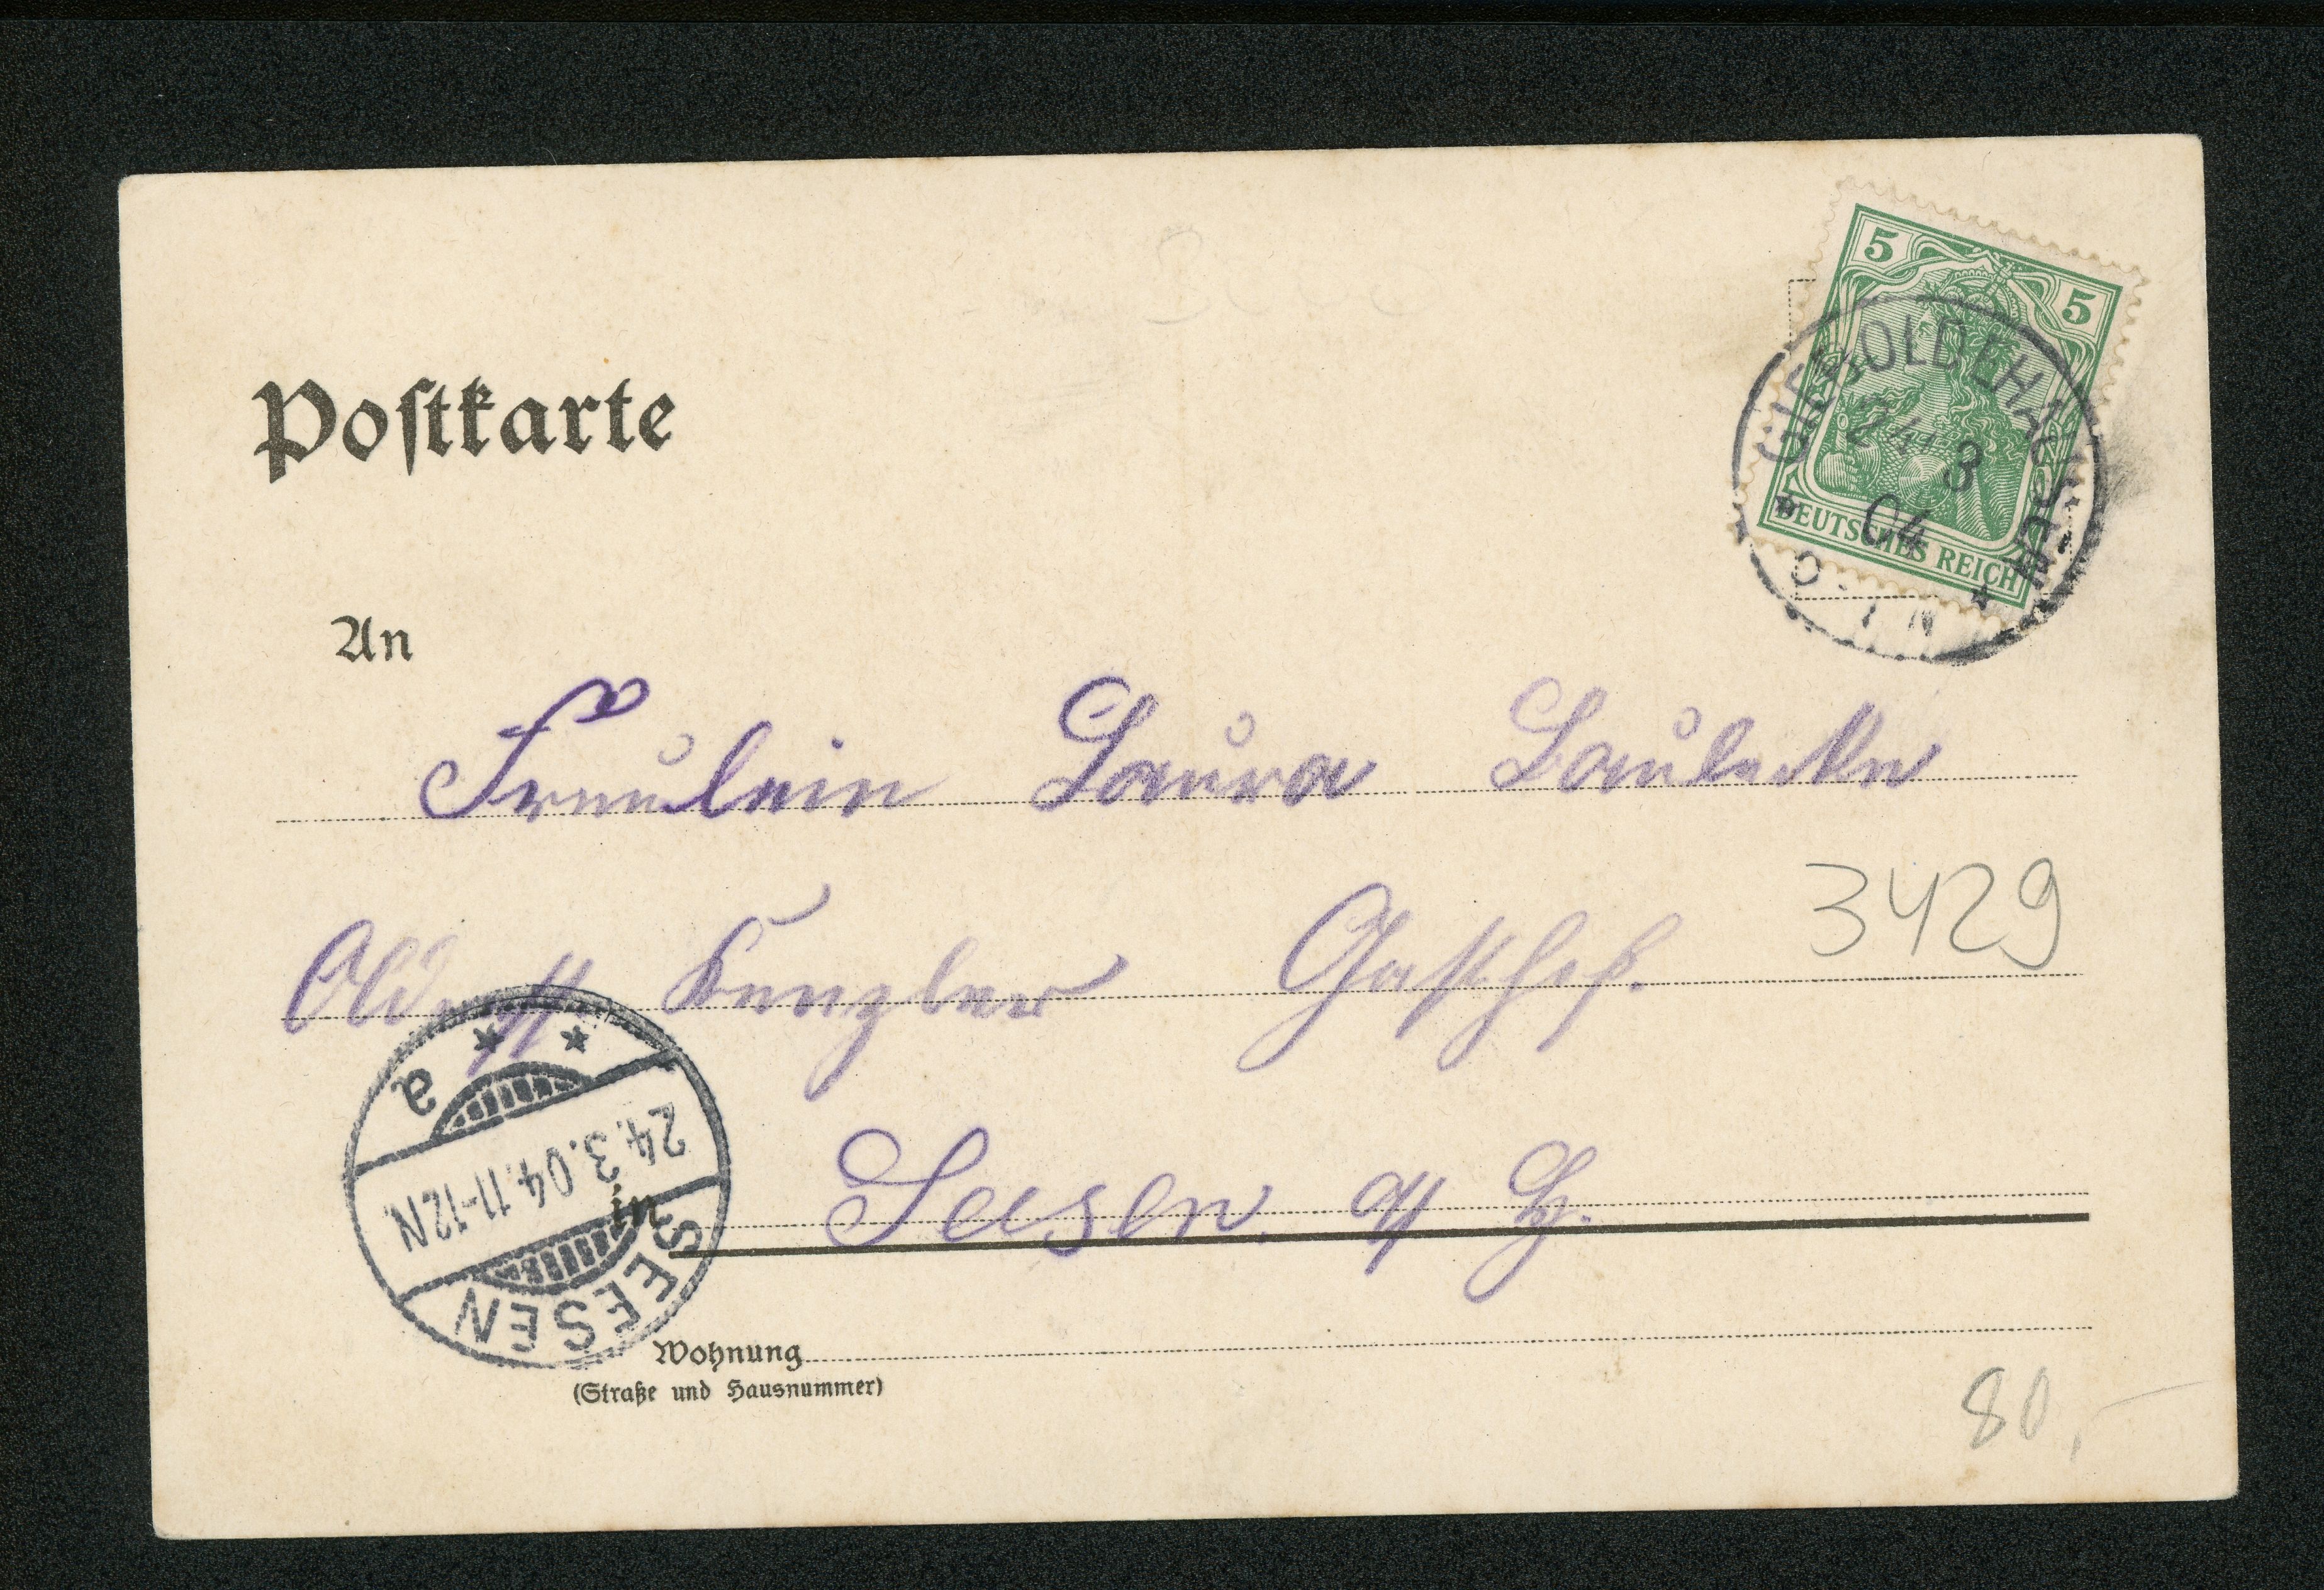 5 5
GITTOLDEHAUSEN
24 3
04
DEUTSCHES REICH
Postkarte
An
Fräulein Laura
3429
Gasthof.
Seesen a/H.
a
24.3.04.11-12N
in
SEESEN
Wohnung
(Straße und Hausnummer)
80,-